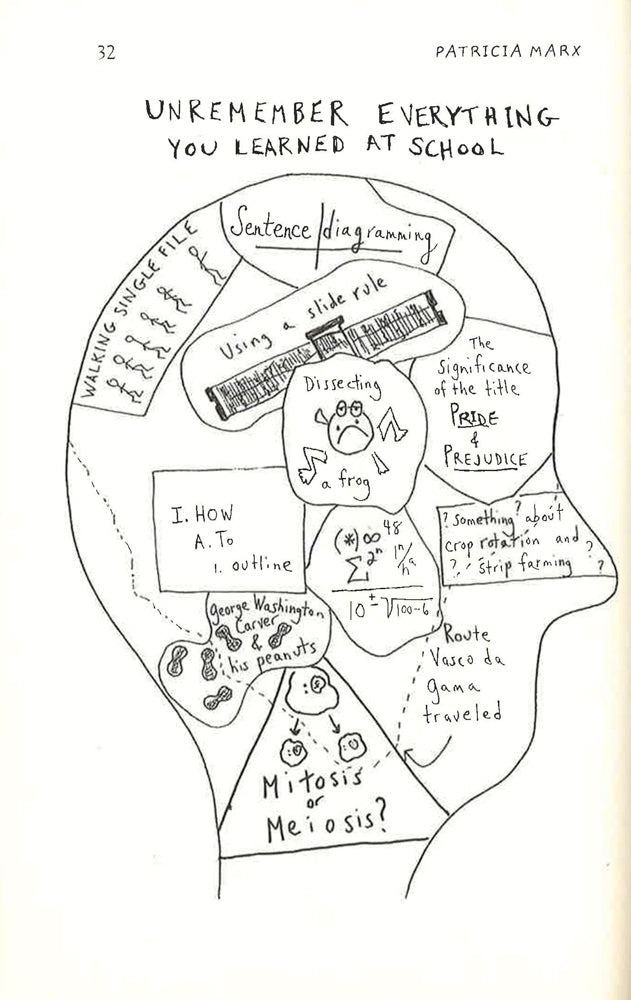 32
PATRICIA MARX
UNREMEMBER EVERYTHING
YOU LEARNED AT SCHOOL
Sentence/diagramming
WALKING SINGLE FILE
Using a slide rule
The
Significance
of the title
PRIDE
&
PREJUDICE
Dissecting
a frog
I. HOW
A. To
1. outline
(*)∞ 48
∑ 2ⁿ 1ⁿ/hᵃ
10 ± √100-6
? Something? about
crop rotation and ?
? ? strip farming ?
George Washington
Carver
&
his peanuts
Route
Vasco da
gama
traveled
Mitosis
or
Meiosis?